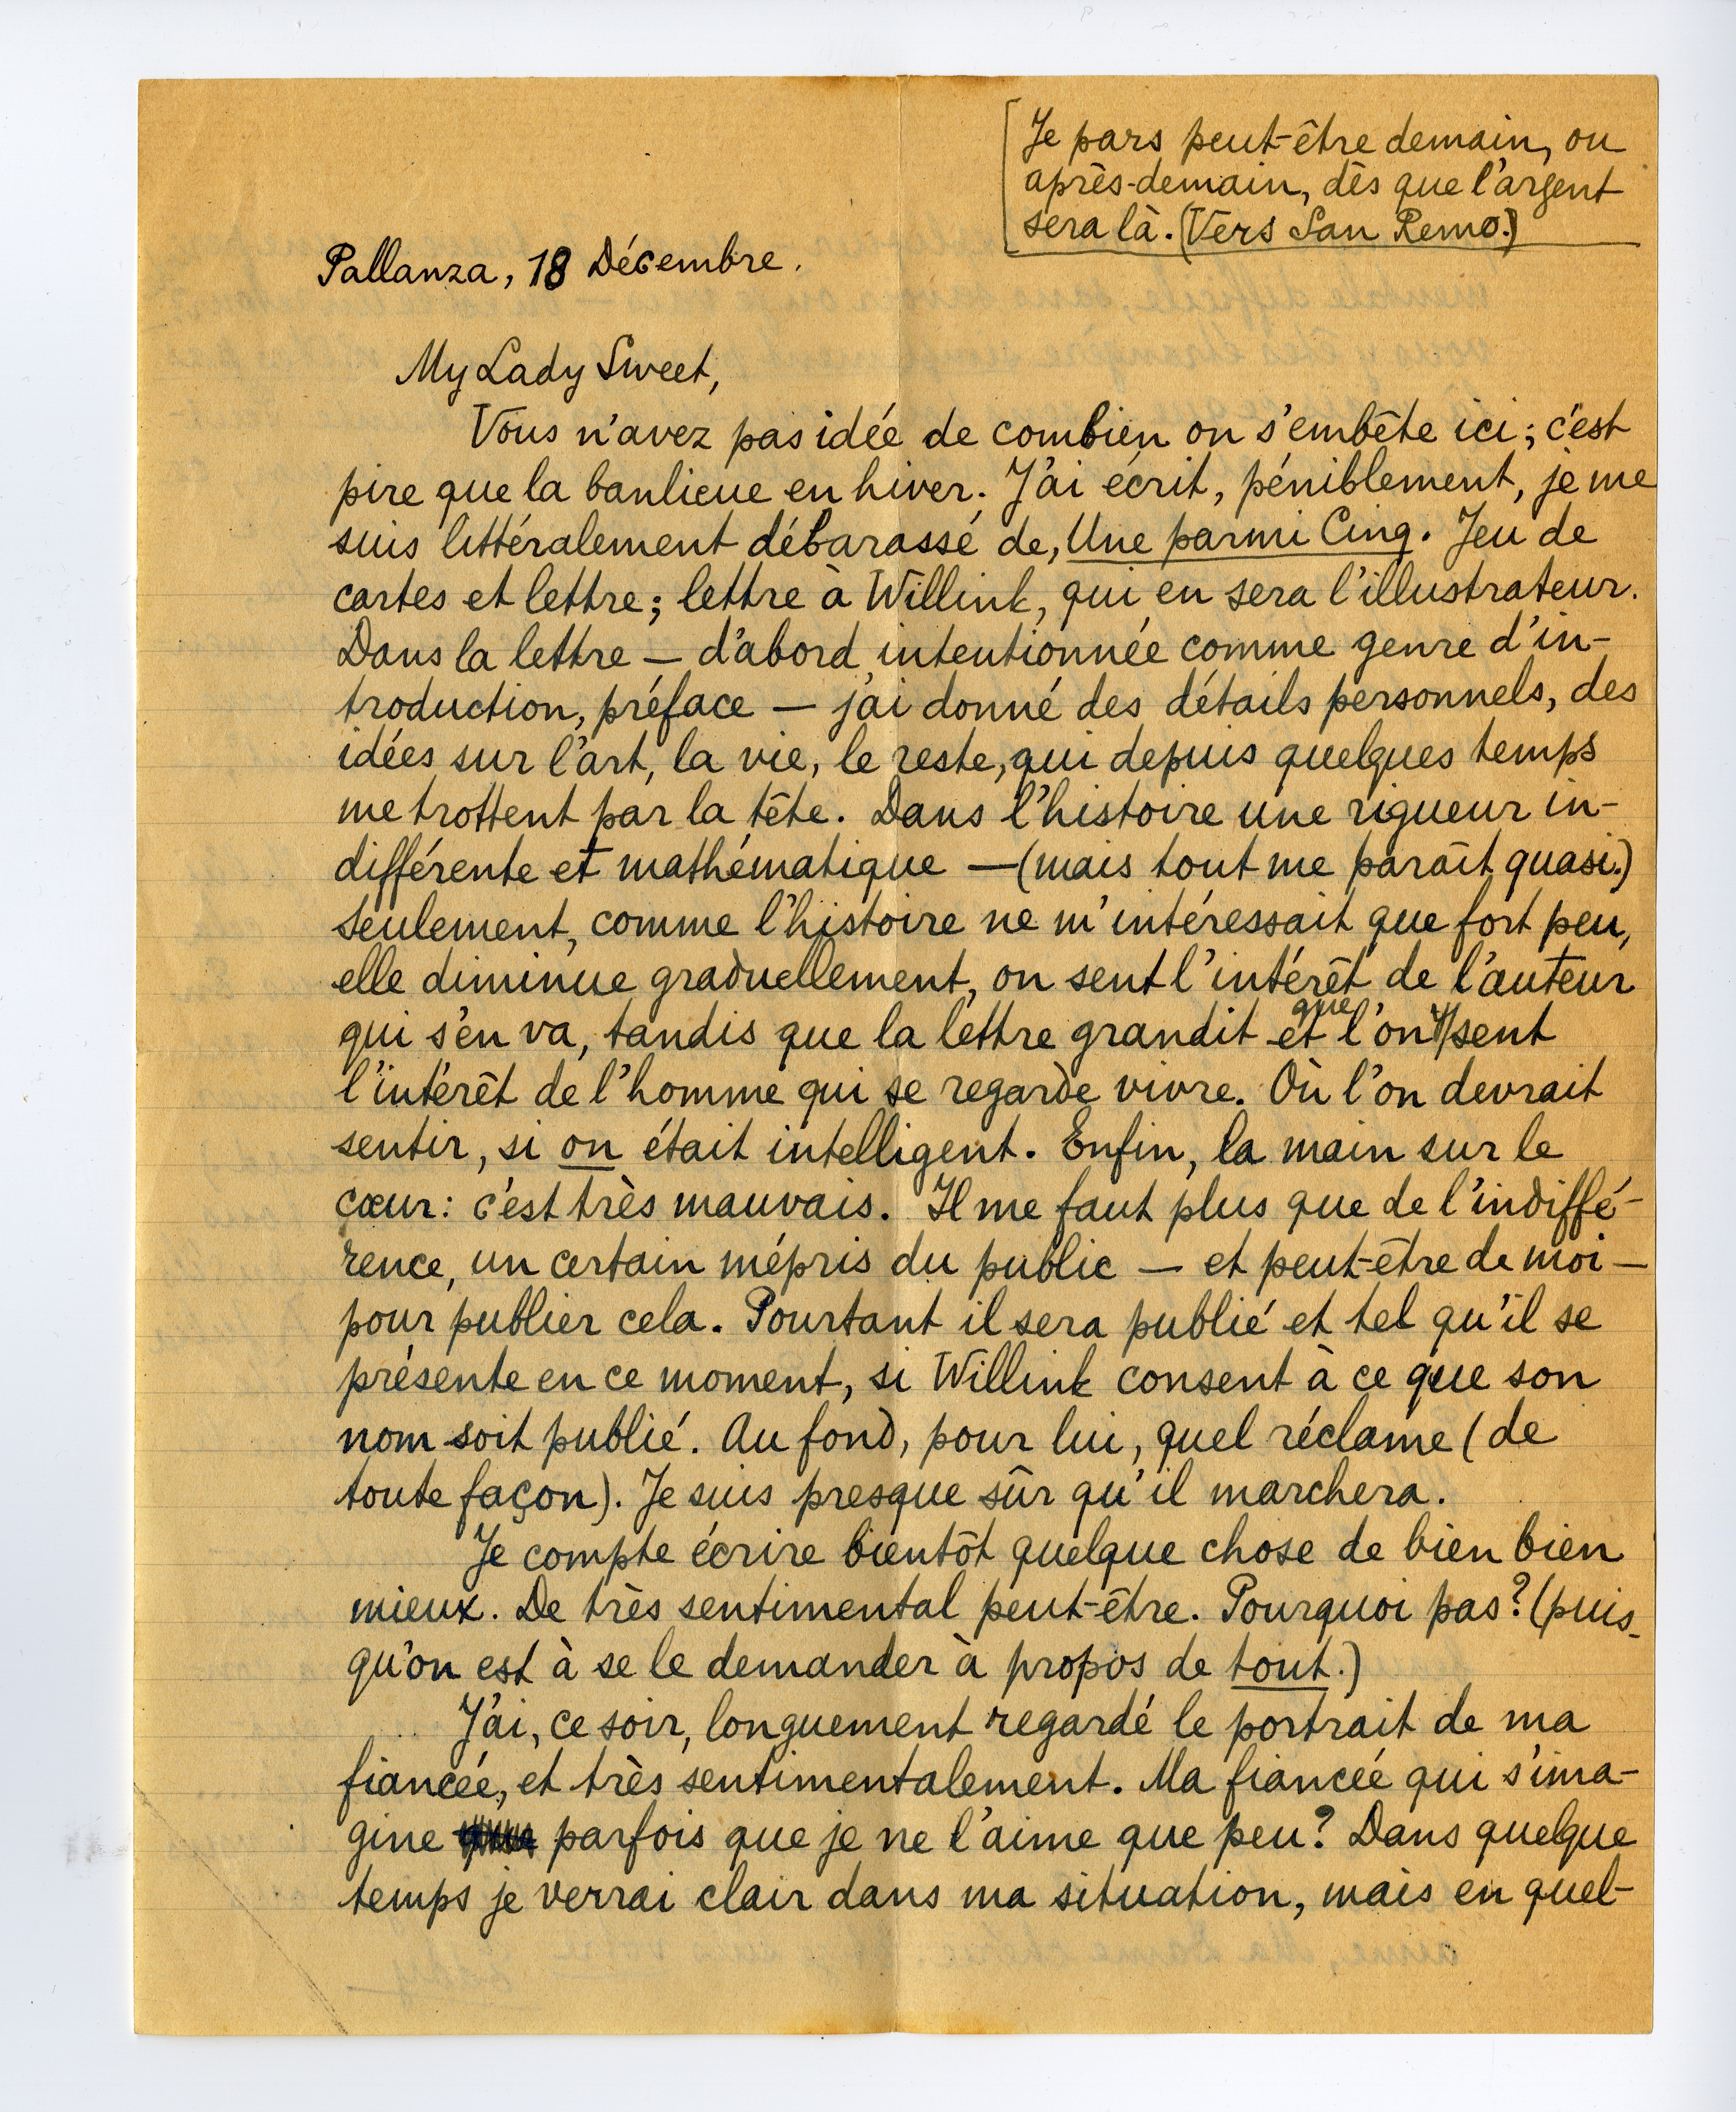 Je pars peut-être demain, ou
après-demain, dès que l'argent
sera là. (Vers San Remo.)
Pallanza, 18 Décembre.
My Lady Sweet,
Vous n'avez pas idée de combien on s'embête ici; c'est
pire que la banlieue en hiver. J'ai écrit, péniblement, je me
suis littéralement débarassé de, Une parmi Cinq. Jeu de
cartes et lettre; lettre à Willink, qui en sera l'illustrateur.
Dans la lettre — d'abord intentionnée comme genre d'in-
troduction, préface — j'ai donné des détails personnels, des
idées sur l'art, la vie, le reste, qui depuis quelques temps
me trottent par la tête. Dans l'histoire une rigueur in-
différente et mathématique — (mais tout me paraît quasi.)
Seulement, comme l'histoire ne m'intéressait que fort peu,
elle diminue graduellement, on sent l'intérêt de l'auteur
qui s'en va, tandis que la lettre grandit et que l'on y sent
l'intérêt de l'homme qui se regarde vivre. Où l'on devrait
sentir, si on était intelligent. Enfin, la main sur le
cœur: c'est très mauvais. Il me faut plus que de l'indiffé-
rence, un certain mépris du public — et peut-être de moi —
pour publier cela. Pourtant il sera publié et tel qu'il se
présente en ce moment, si Willink consent à ce que son
nom soit publié. Au fond, pour lui, quel réclame (de
toute façon). Je suis presque sûr qu'il marchera.
Je compte écrire bientôt quelque chose de bien bien
mieux. De très sentimental peut-être. Pourquoi pas? (puis-
qu'on est à se le demander à propos de tout.)
J'ai, ce soir, longuement regardé le portrait de ma
fiancée, et très sentimentalement. Ma fiancée qui s'ima-
gine parfois que je ne l'aime que peu? Dans quelque
temps je verrai clair dans ma situation, mais en quel-